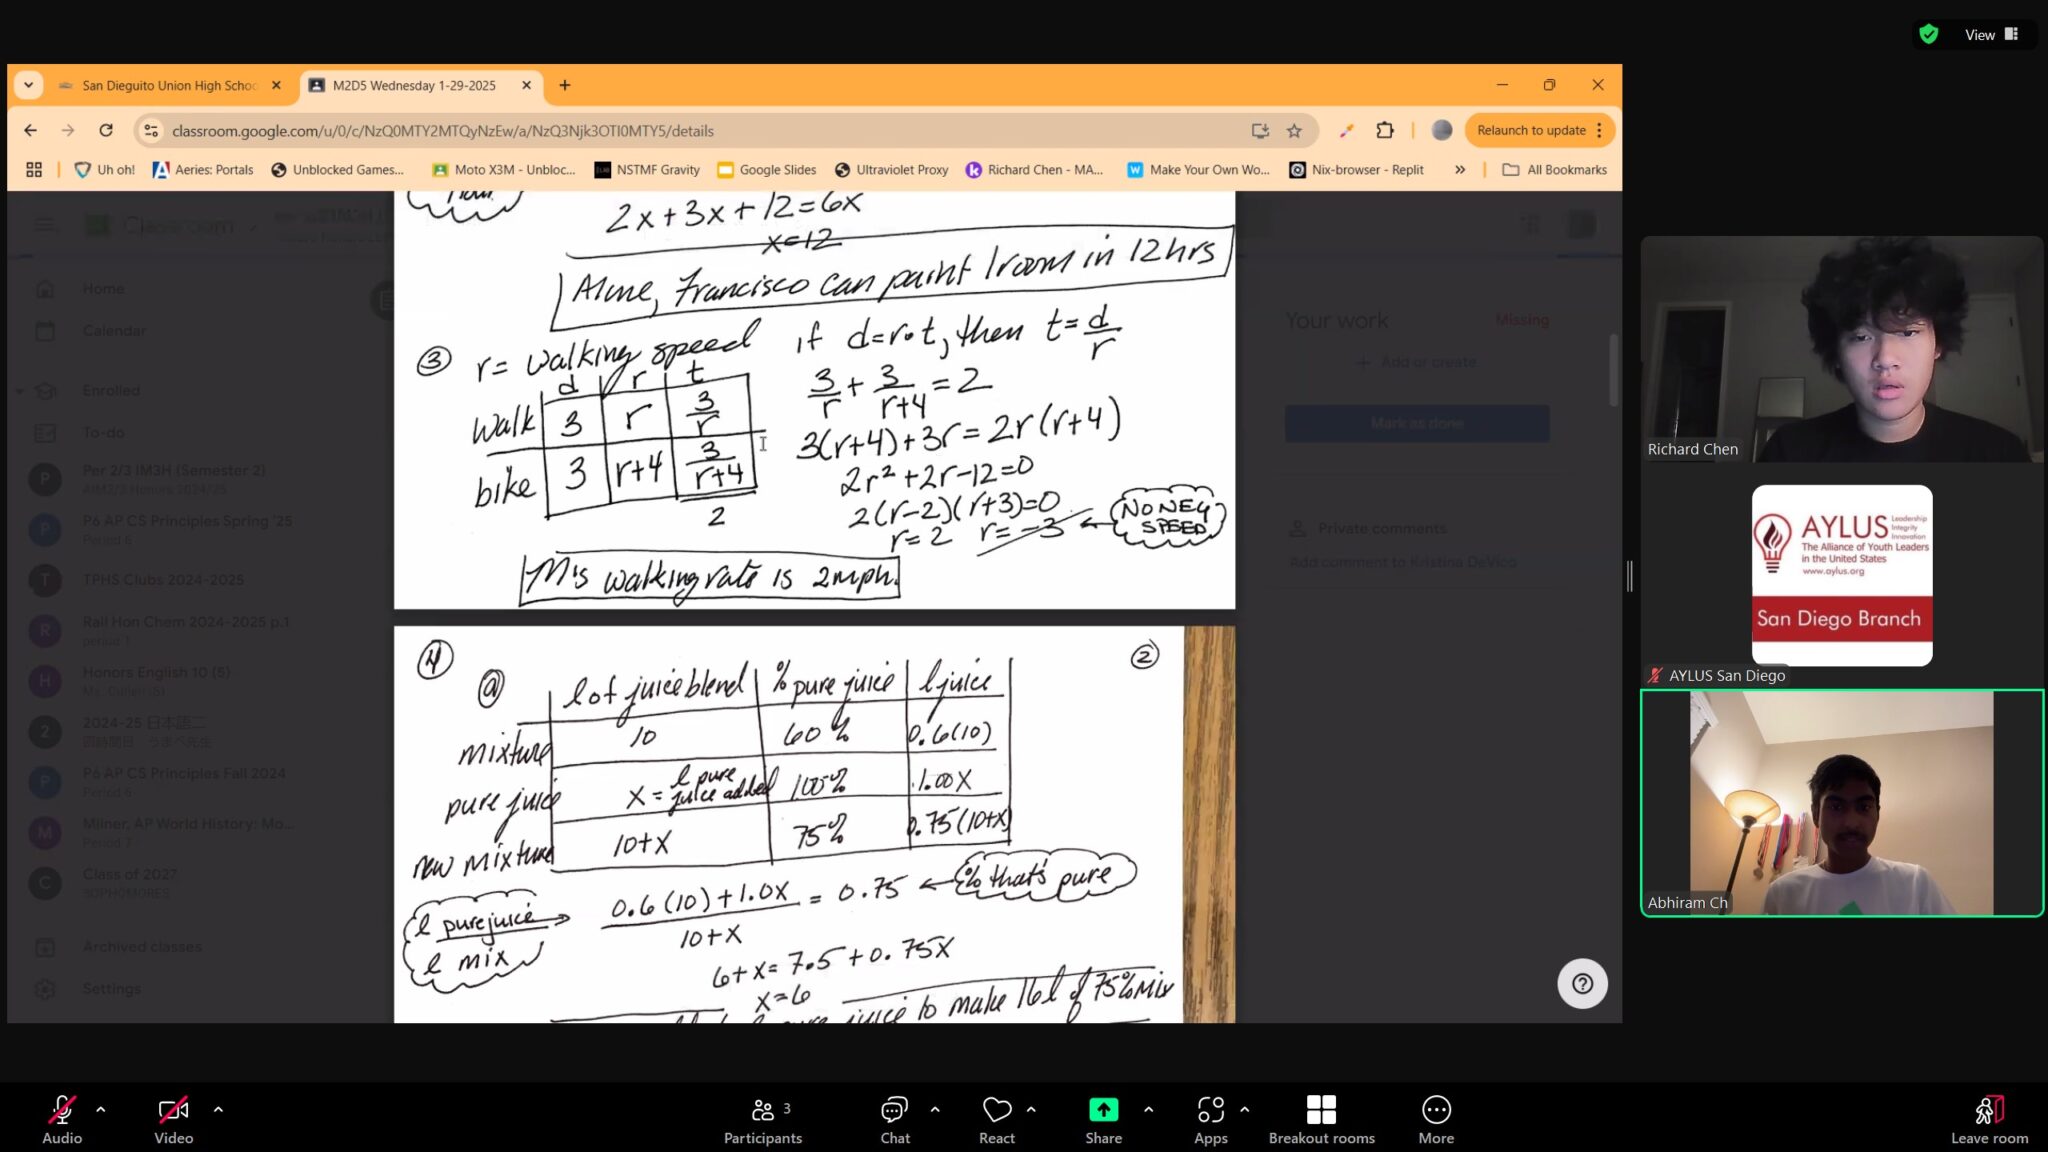 View
San Dieguito Union High Schoo
M2D5 Wednesday 1-29-2025
classroom.google.com/u/0/c/NzQ0MTY2MTQyNzEw/a/NzQ3Njk3OTI0MTY5/details
Relaunch to update
Uh oh!
Aeries: Portals
Unblocked Games...
Moto X3M - Unbloc...
NSTMF Gravity
Google Slides
Ultraviolet Proxy
Richard Chen - MA...
Make Your Own Wo...
Nix-browser - Replit
All Bookmarks
Classroom
Home
Calendar
Enrolled
To-do
Per 2/3 IM3H (Semester 2)
AIM2/3 Honors 2024/25
P6 AP CS Principles Spring '25
Period 6
TPHS Clubs 2024-2025
Rall Hon Chem 2024-2025 p.1
period 1
Honors English 10 (5)
2024-25 日本語二
P6 AP CS Principles Fall 2024
Period 6
Milner, AP World History: Mo...
Period 7
Class of 2027
SOPHOMORES
Archived classes
Settings
hour
2x+3x+12=6x
x=12
Alone, Francisco can paint 1 room in 12 hrs
③ r= walking speed if d=r·t, then t=d/r
d r t
walk 3 r 3/r
bike 3 r+4 3/r+4
2
3/r + 3/r+4 = 2
3(r+4)+3r=2r(r+4)
2r²+2r-12=0
2(r-2)(r+3)=0
r=2 r=-3 ← NO NEG SPEED
M's walking rate is 2mph.
④ ②
ⓐ l of juice blend % pure juice l juice
mixture 10 60% 0.6(10)
pure juice x = l pure juice added 100% 1.00x
new mixture 10+x 75% 0.75(10+x)
l pure juice
l mix
0.6(10)+1.0x / 10+x = 0.75 ← % that's pure
6+x=7.5+0.75x
x=6
juice to make 16l of 75% mix
Your work
Missing
+ Add or create
Mark as done
Private comments
Add comment to Kristina DeVico
Richard Chen
AYLUS
Leadership
Integrity
Innovation
The Alliance of Youth Leaders
in the United States
www.aylus.org
San Diego Branch
AYLUS San Diego
Abhiram Ch
Audio
Video
Participants
3
Chat
React
Share
Apps
Breakout rooms
More
Leave room